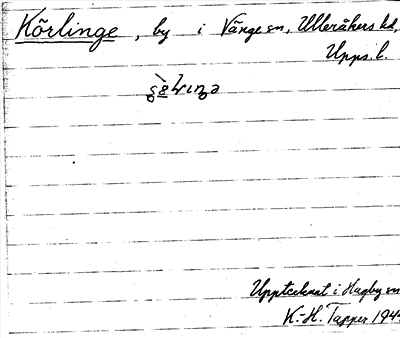 Körlinge, by i Vänge sn, Ulleråkers hd,
Upps. l.
Upptecknat i Hagby sn
K.-H. Tapper 194